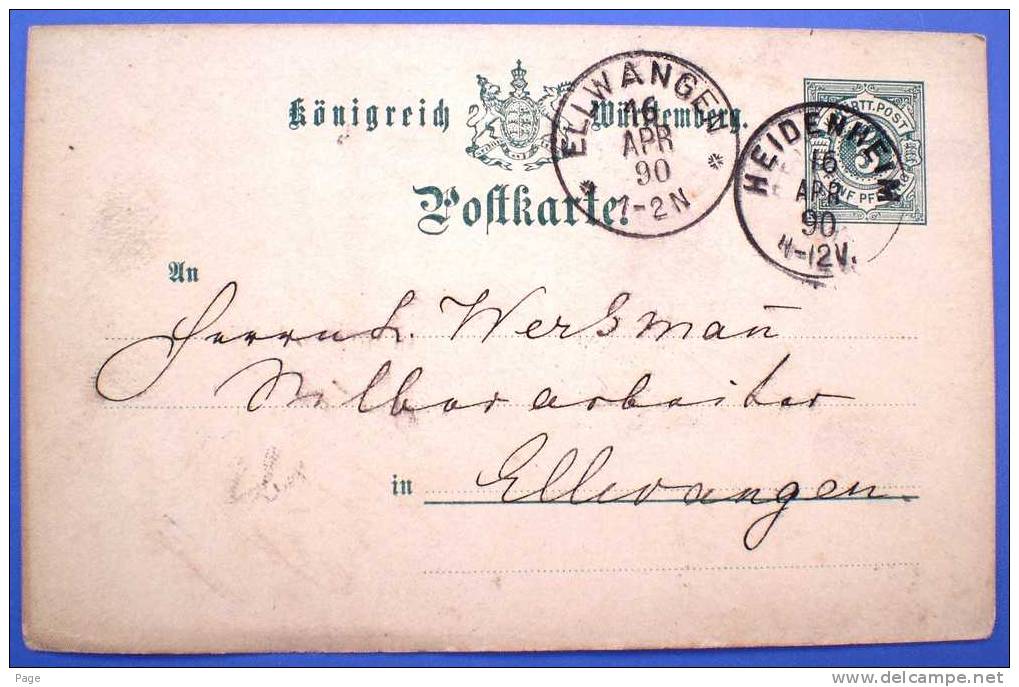 Königreich Württemberg.
Postkarte.
ELLWANGEN
16
APR
90
1-2N
WÜRTT. POST
5
FÜNF PFENNIG
HEIDENHEIM
16
APR
90
11-12V.
An
Herrn L. Werkman̄
Silberarbeiter
in Ellwangen.
Page
www.delcampe.net